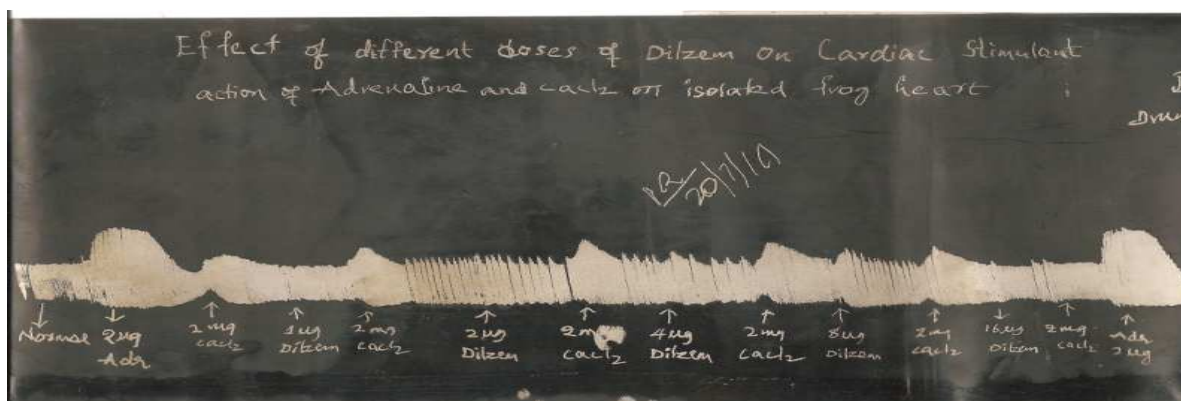 Effect of different doses of Dilzem on Cardiac Stimulant
action of Adrenaline and cacl2 on isolated frog heart
Dru
20/7/19
Normal
2ug
Adr
2mg
cacl2
1ug
Dilzem
2mg
cacl2
2ug
Dilzem
2m
cacl2
4ug
Dilzem
2mg
cacl2
8ug
Dilzem
2mg
cacl2
16ug
Dilzem
2mg
cacl2
Adr
2ug